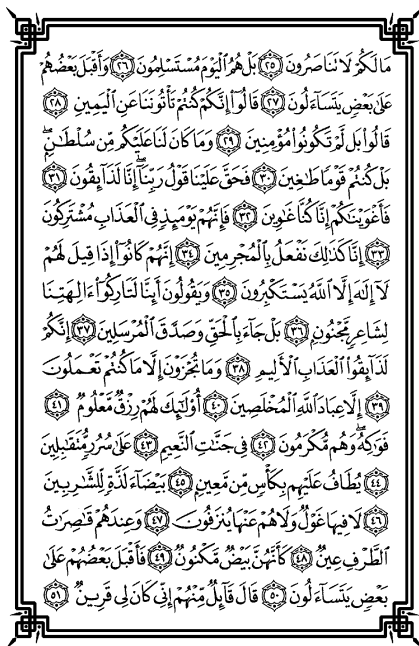 مَا لَكُمْ لَا تَنَاصَرُونَ ۝٢٥ بَلْ هُمُ ٱلْيَوْمَ مُسْتَسْلِمُونَ ۝٢٦ وَأَقْبَلَ بَعْضُهُمْ
عَلَىٰ بَعْضٍ يَتَسَآءَلُونَ ۝٢٧ قَالُوٓا۟ إِنَّكُمْ كُنتُمْ تَأْتُونَنَا عَنِ ٱلْيَمِينِ ۝٢٨
قَالُوا۟ بَل لَّمْ تَكُونُوا۟ مُؤْمِنِينَ ۝٢٩ وَمَا كَانَ لَنَا عَلَيْكُم مِّن سُلْطَٰنٍۭ ۖ
بَلْ كُنتُمْ قَوْمًا طَٰغِينَ ۝٣٠ فَحَقَّ عَلَيْنَا قَوْلُ رَبِّنَآ ۖ إِنَّا لَذَآئِقُونَ ۝٣١
فَأَغْوَيْنَٰكُمْ إِنَّا كُنَّا غَٰوِينَ ۝٣٢ فَإِنَّهُمْ يَوْمَئِذٍ فِى ٱلْعَذَابِ مُشْتَرِكُونَ
۝٣٣ إِنَّا كَذَٰلِكَ نَفْعَلُ بِٱلْمُجْرِمِينَ ۝٣٤ إِنَّهُمْ كَانُوٓا۟ إِذَا قِيلَ لَهُمْ
لَآ إِلَٰهَ إِلَّا ٱللَّهُ يَسْتَكْبِرُونَ ۝٣٥ وَيَقُولُونَ أَئِنَّا لَتَارِكُوٓا۟ ءَالِهَتِنَا
لِشَاعِرٍ مَّجْنُونٍۭ ۝٣٦ بَلْ جَآءَ بِٱلْحَقِّ وَصَدَّقَ ٱلْمُرْسَلِينَ ۝٣٧ إِنَّكُمْ
لَذَآئِقُوا۟ ٱلْعَذَابِ ٱلْأَلِيمِ ۝٣٨ وَمَا تُجْزَوْنَ إِلَّا مَا كُنتُمْ تَعْمَلُونَ
۝٣٩ إِلَّا عِبَادَ ٱللَّهِ ٱلْمُخْلَصِينَ ۝٤٠ أُو۟لَٰٓئِكَ لَهُمْ رِزْقٌ مَّعْلُومٌ ۝٤١
فَوَٰكِهُ ۖ وَهُم مُّكْرَمُونَ ۝٤٢ فِى جَنَّٰتِ ٱلنَّعِيمِ ۝٤٣ عَلَىٰ سُرُرٍ مُّتَقَٰبِلِينَ
۝٤٤ يُطَافُ عَلَيْهِم بِكَأْسٍ مِّن مَّعِينٍۭ ۝٤٥ بَيْضَآءَ لَذَّةٍ لِّلشَّٰرِبِينَ
۝٤٦ لَا فِيهَا غَوْلٌ وَلَا هُمْ عَنْهَا يُنزَفُونَ ۝٤٧ وَعِندَهُمْ قَٰصِرَٰتُ
ٱلطَّرْفِ عِينٌ ۝٤٨ كَأَنَّهُنَّ بَيْضٌ مَّكْنُونٌ ۝٤٩ فَأَقْبَلَ بَعْضُهُمْ عَلَىٰ
بَعْضٍ يَتَسَآءَلُونَ ۝٥٠ قَالَ قَآئِلٌ مِّنْهُمْ إِنِّى كَانَ لِى قَرِينٌ ۝٥١